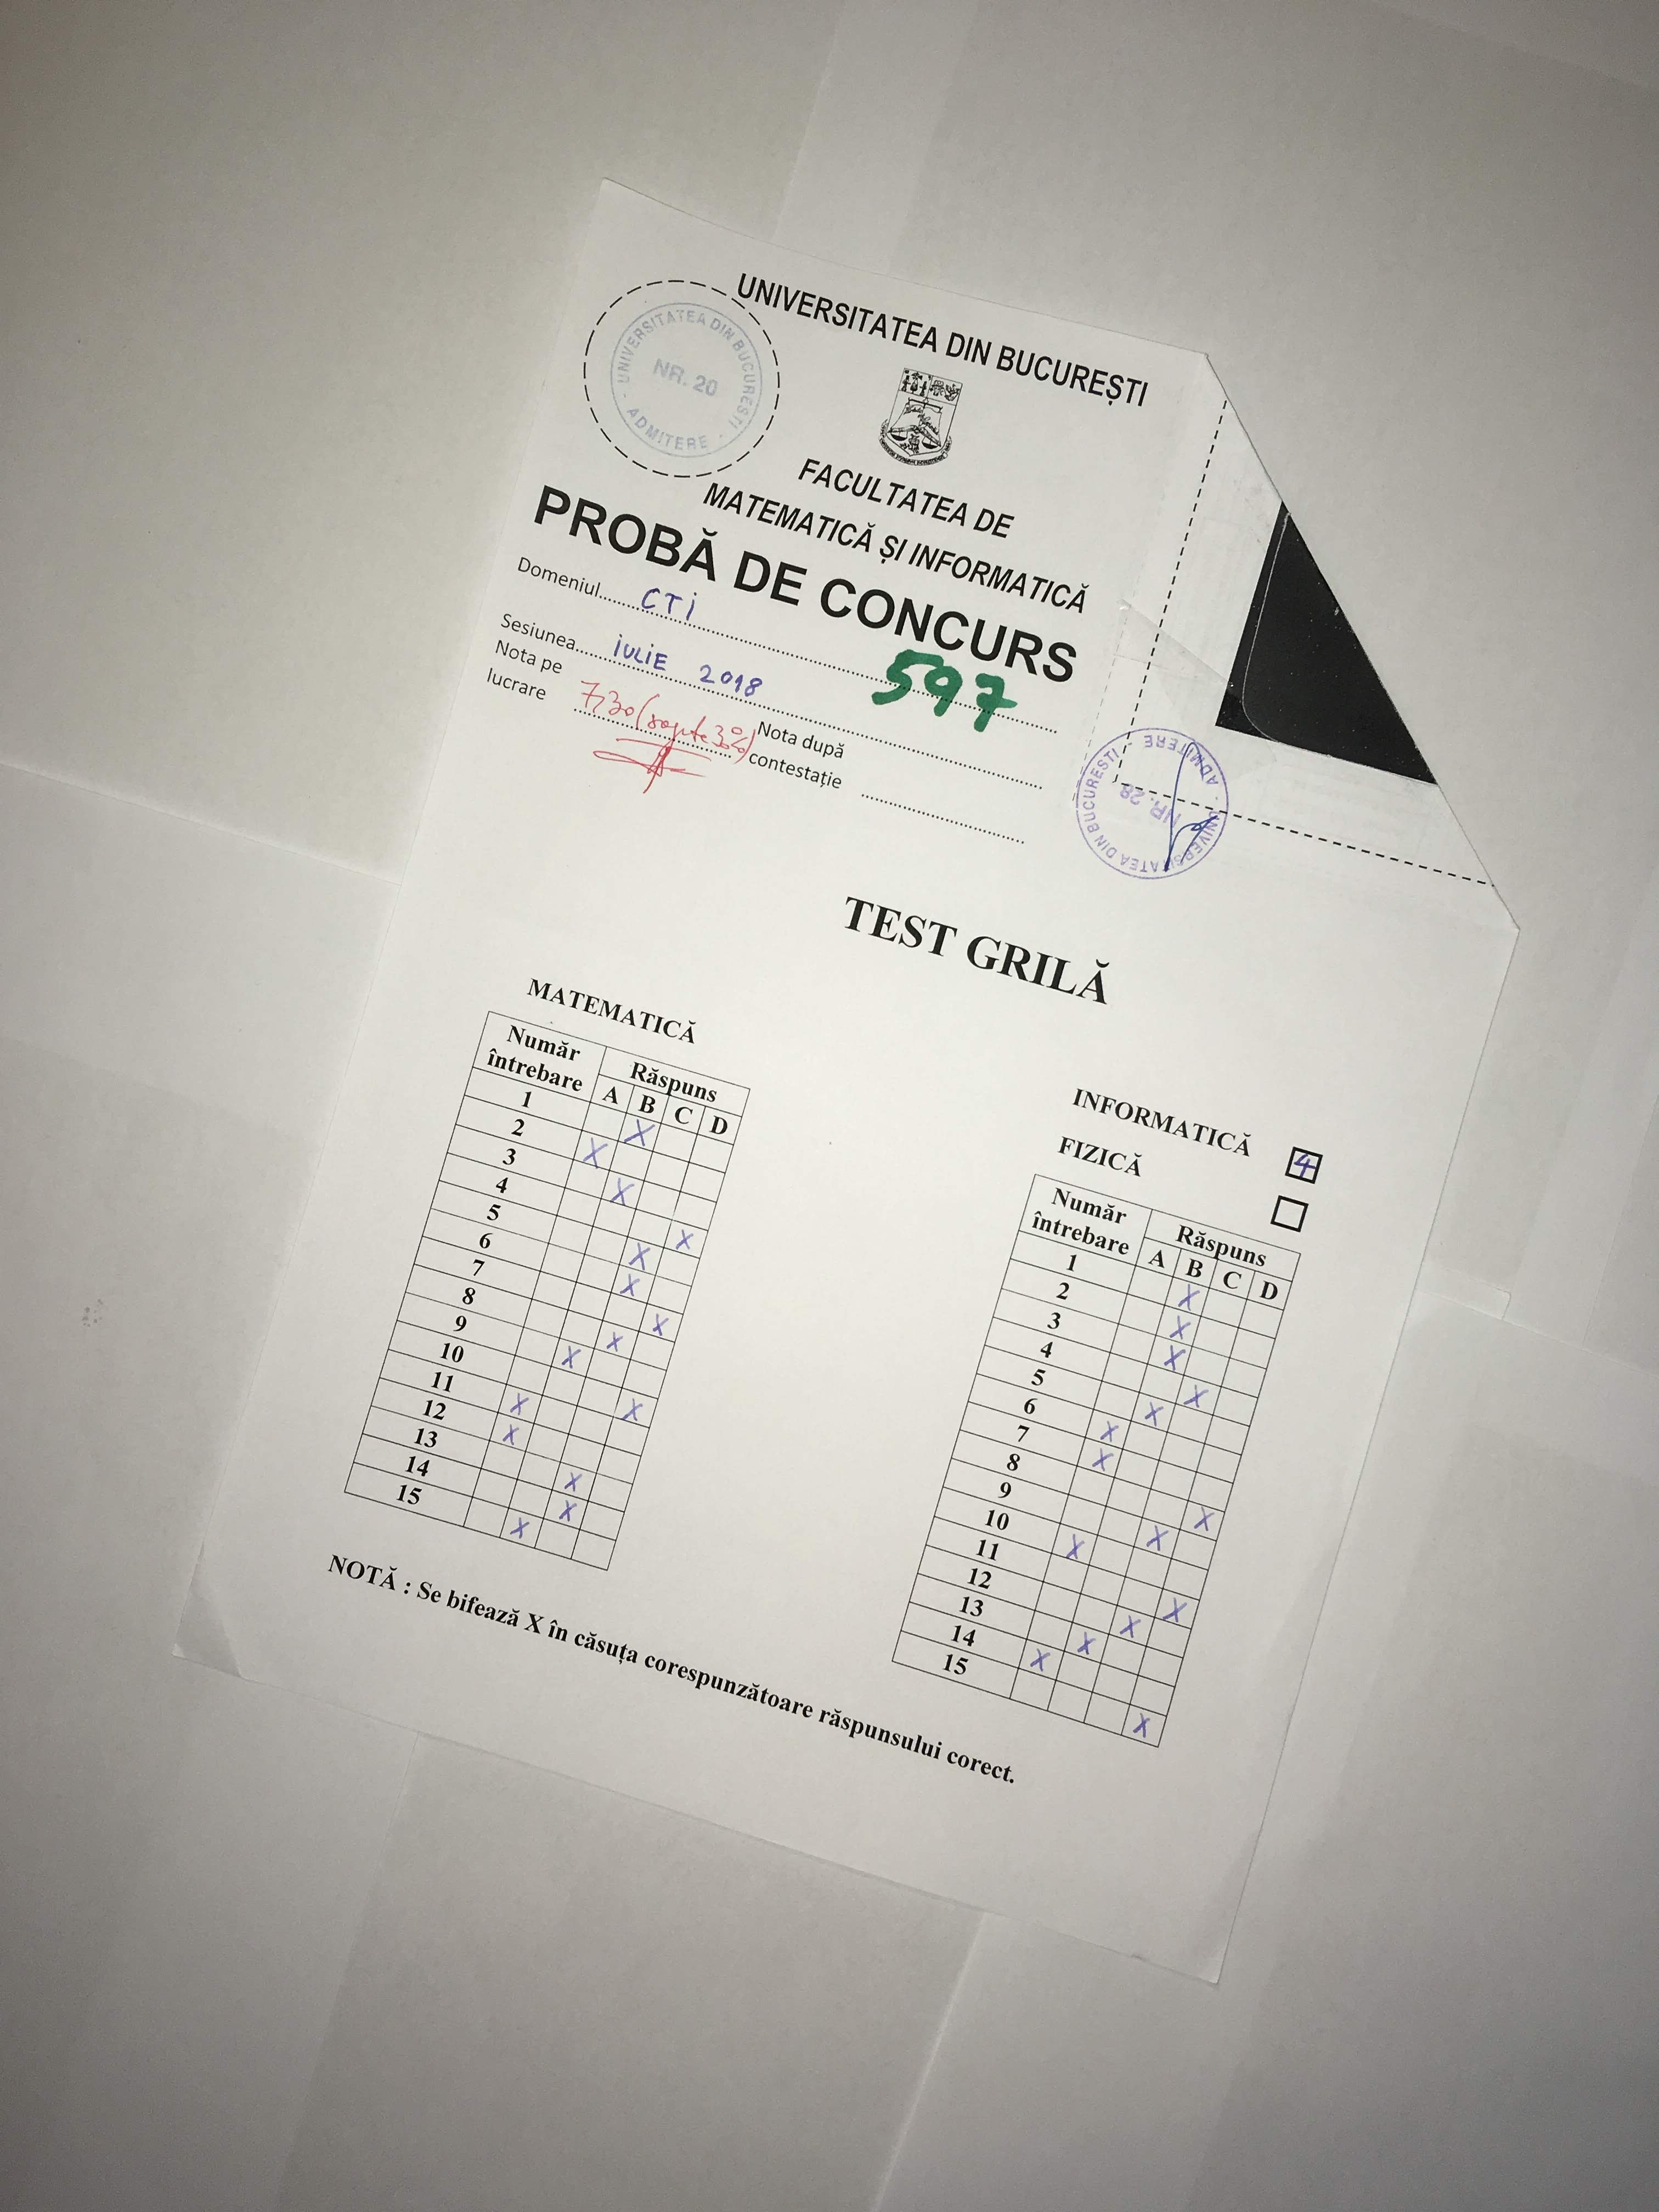 UNIVERSITATEA DIN BUCUREȘTI
UNIVERSITATEA DIN BUCUREȘTI · ADMITERE ·
NR. 20
FACULTATEA DE
MATEMATICĂ ȘI INFORMATICĂ
PROBĂ DE CONCURS
Domeniul CTI
597
Sesiunea IULIE 2018
Nota pe lucrare 7,30 (șapte 30%)
Nota după contestație
UNIVERSITATEA DIN BUCURESTI · ADMITERE ·
NR. 28
TEST GRILĂ
MATEMATICĂ
Număr întrebare Răspuns
A B C D
1 X
2 X
3 X
4 X
5 X
6 X
7 X
8 X
9 X
10 X
11 X
12 X
13 X
14 X
15 X
INFORMATICĂ 4
FIZICĂ
Număr întrebare Răspuns
A B C D
1 X
2 X
3 X
4 X
5 X
6 X
7 X
8 X
9 X
10 X
11 X
12 X
13 X
14 X
15 X
NOTĂ : Se bifează X în căsuța corespunzătoare răspunsului corect.